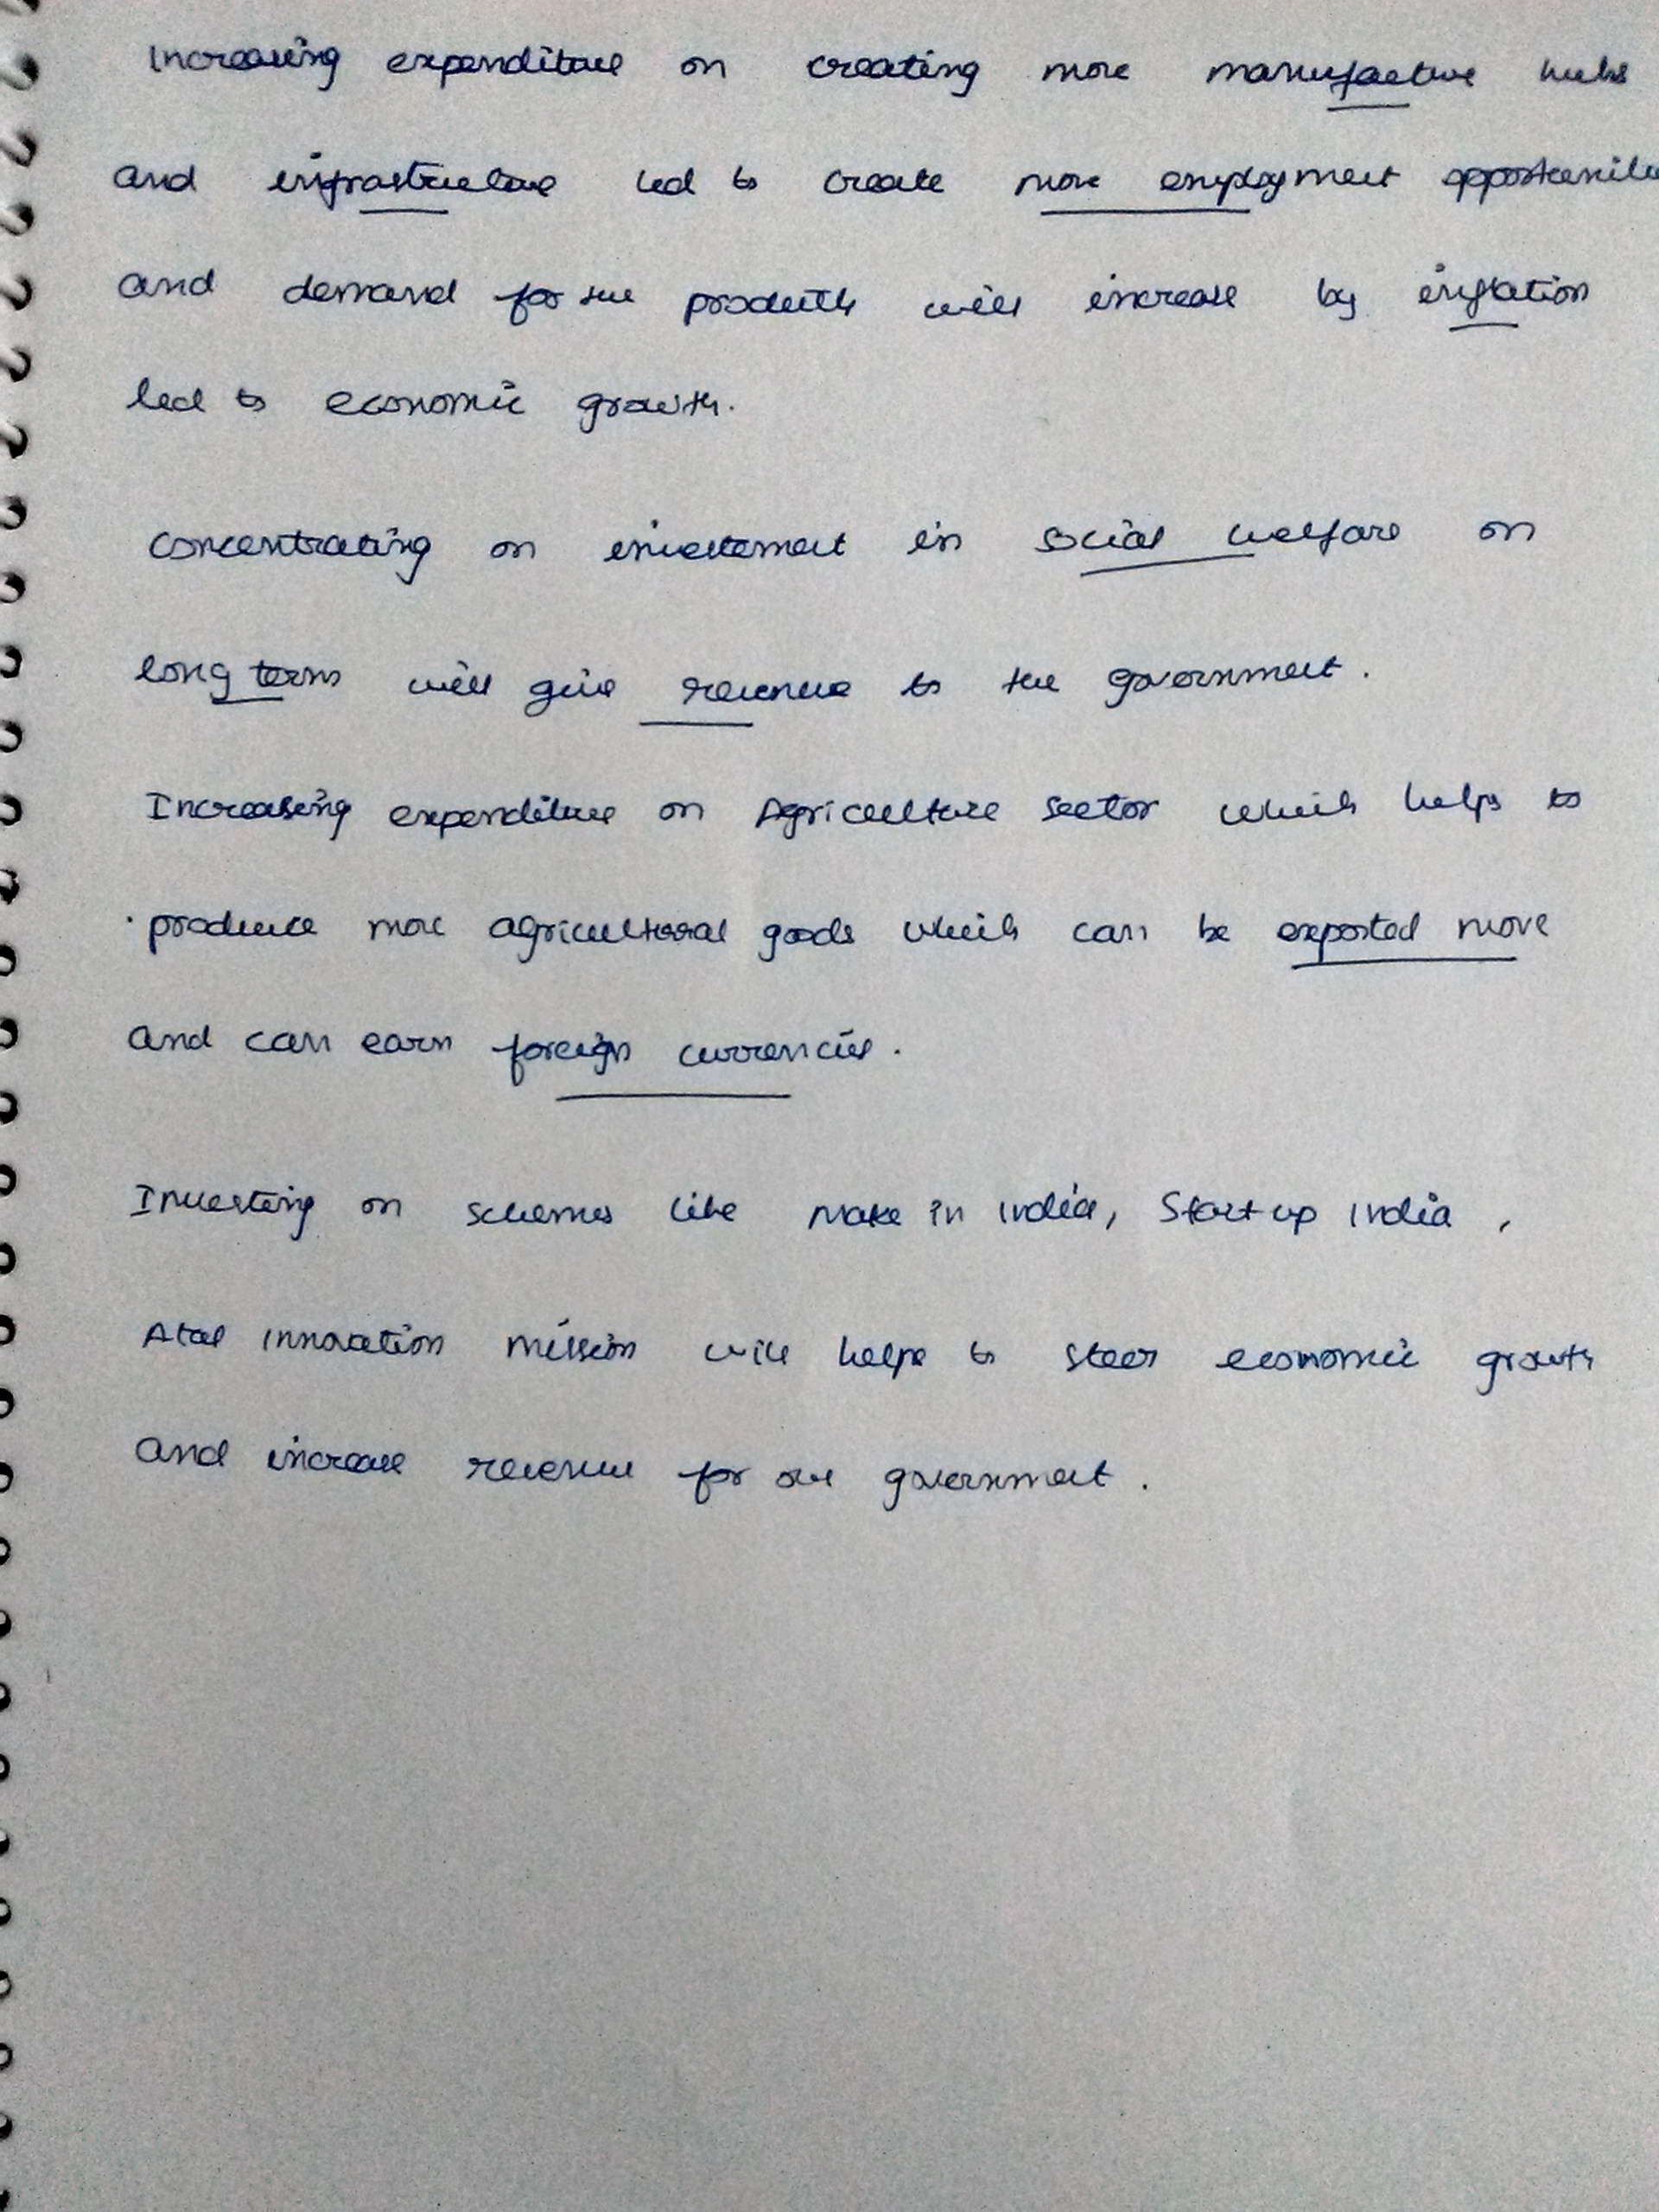 Increasing expenditure on creating more manufacture hubs
and infrastructure led to create more employment
and demand for the products will increase by inflation
led to economic growth.
Concentrating on investement in social welfare on
long term will give revenue to the government.
Increasing expenditure on Agriculture sector which helps to
produce more agricultural goods which can be exported more
and can earn foreign currencies.
Investing on schemes like Make in india, Start up India,
Atal innovation mission will helps to steer economic growth
and increase revenue for our government.